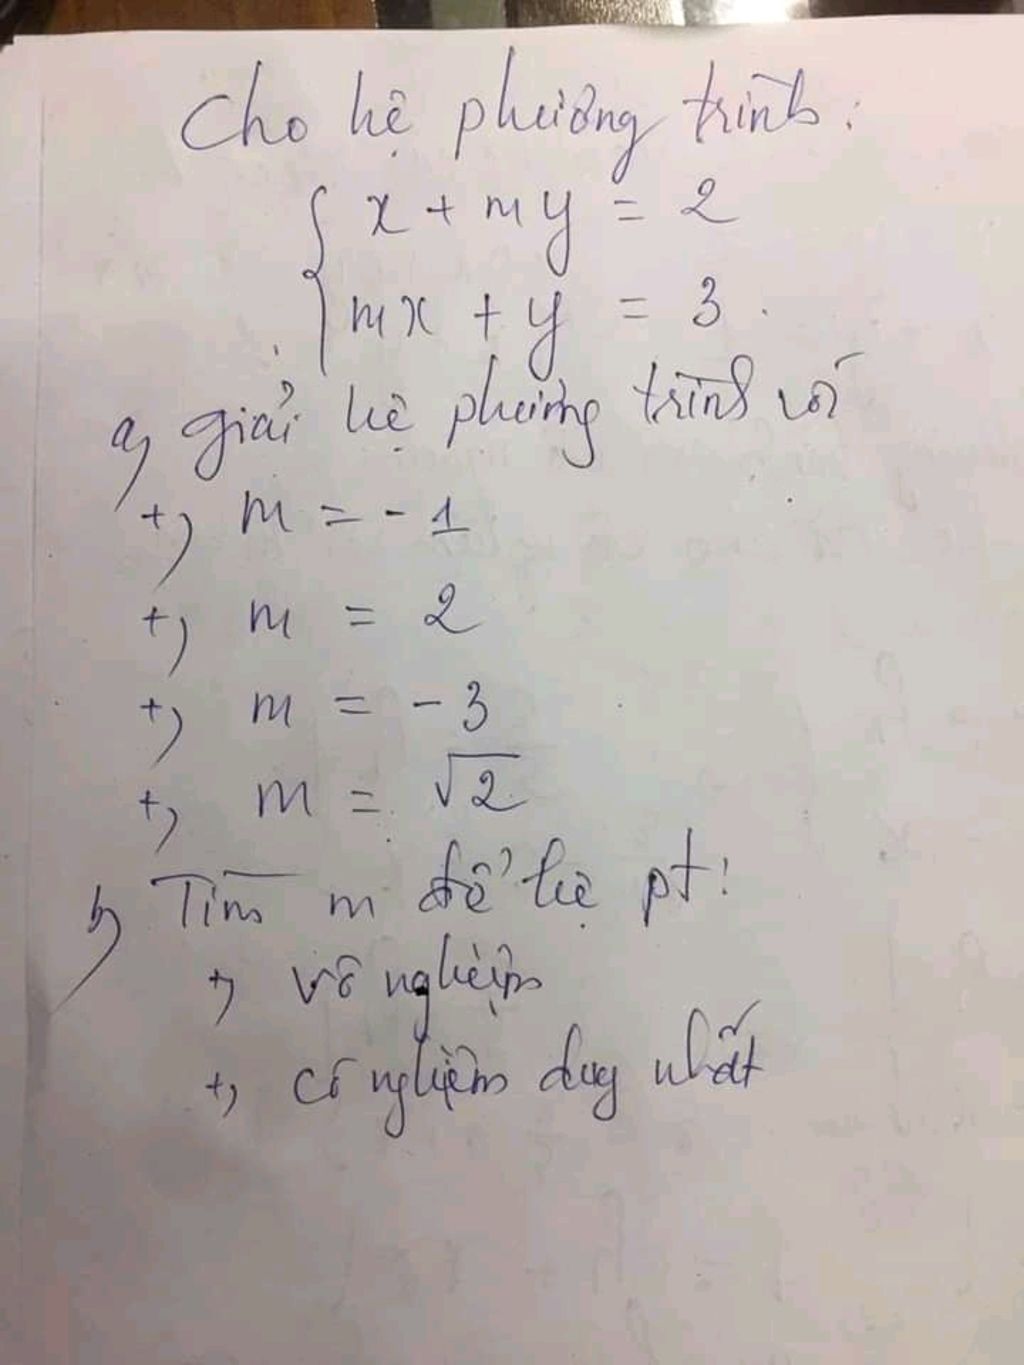 Cho hệ phương trình:
x + my = 2
mx + y = 3
a, giải hệ phương trình với
+, m = - 1
+, m = 2
+, m = - 3
+, m = √2
b, Tìm m để hệ pt:
+, vô nghiệm
+, có nghiệm duy nhất